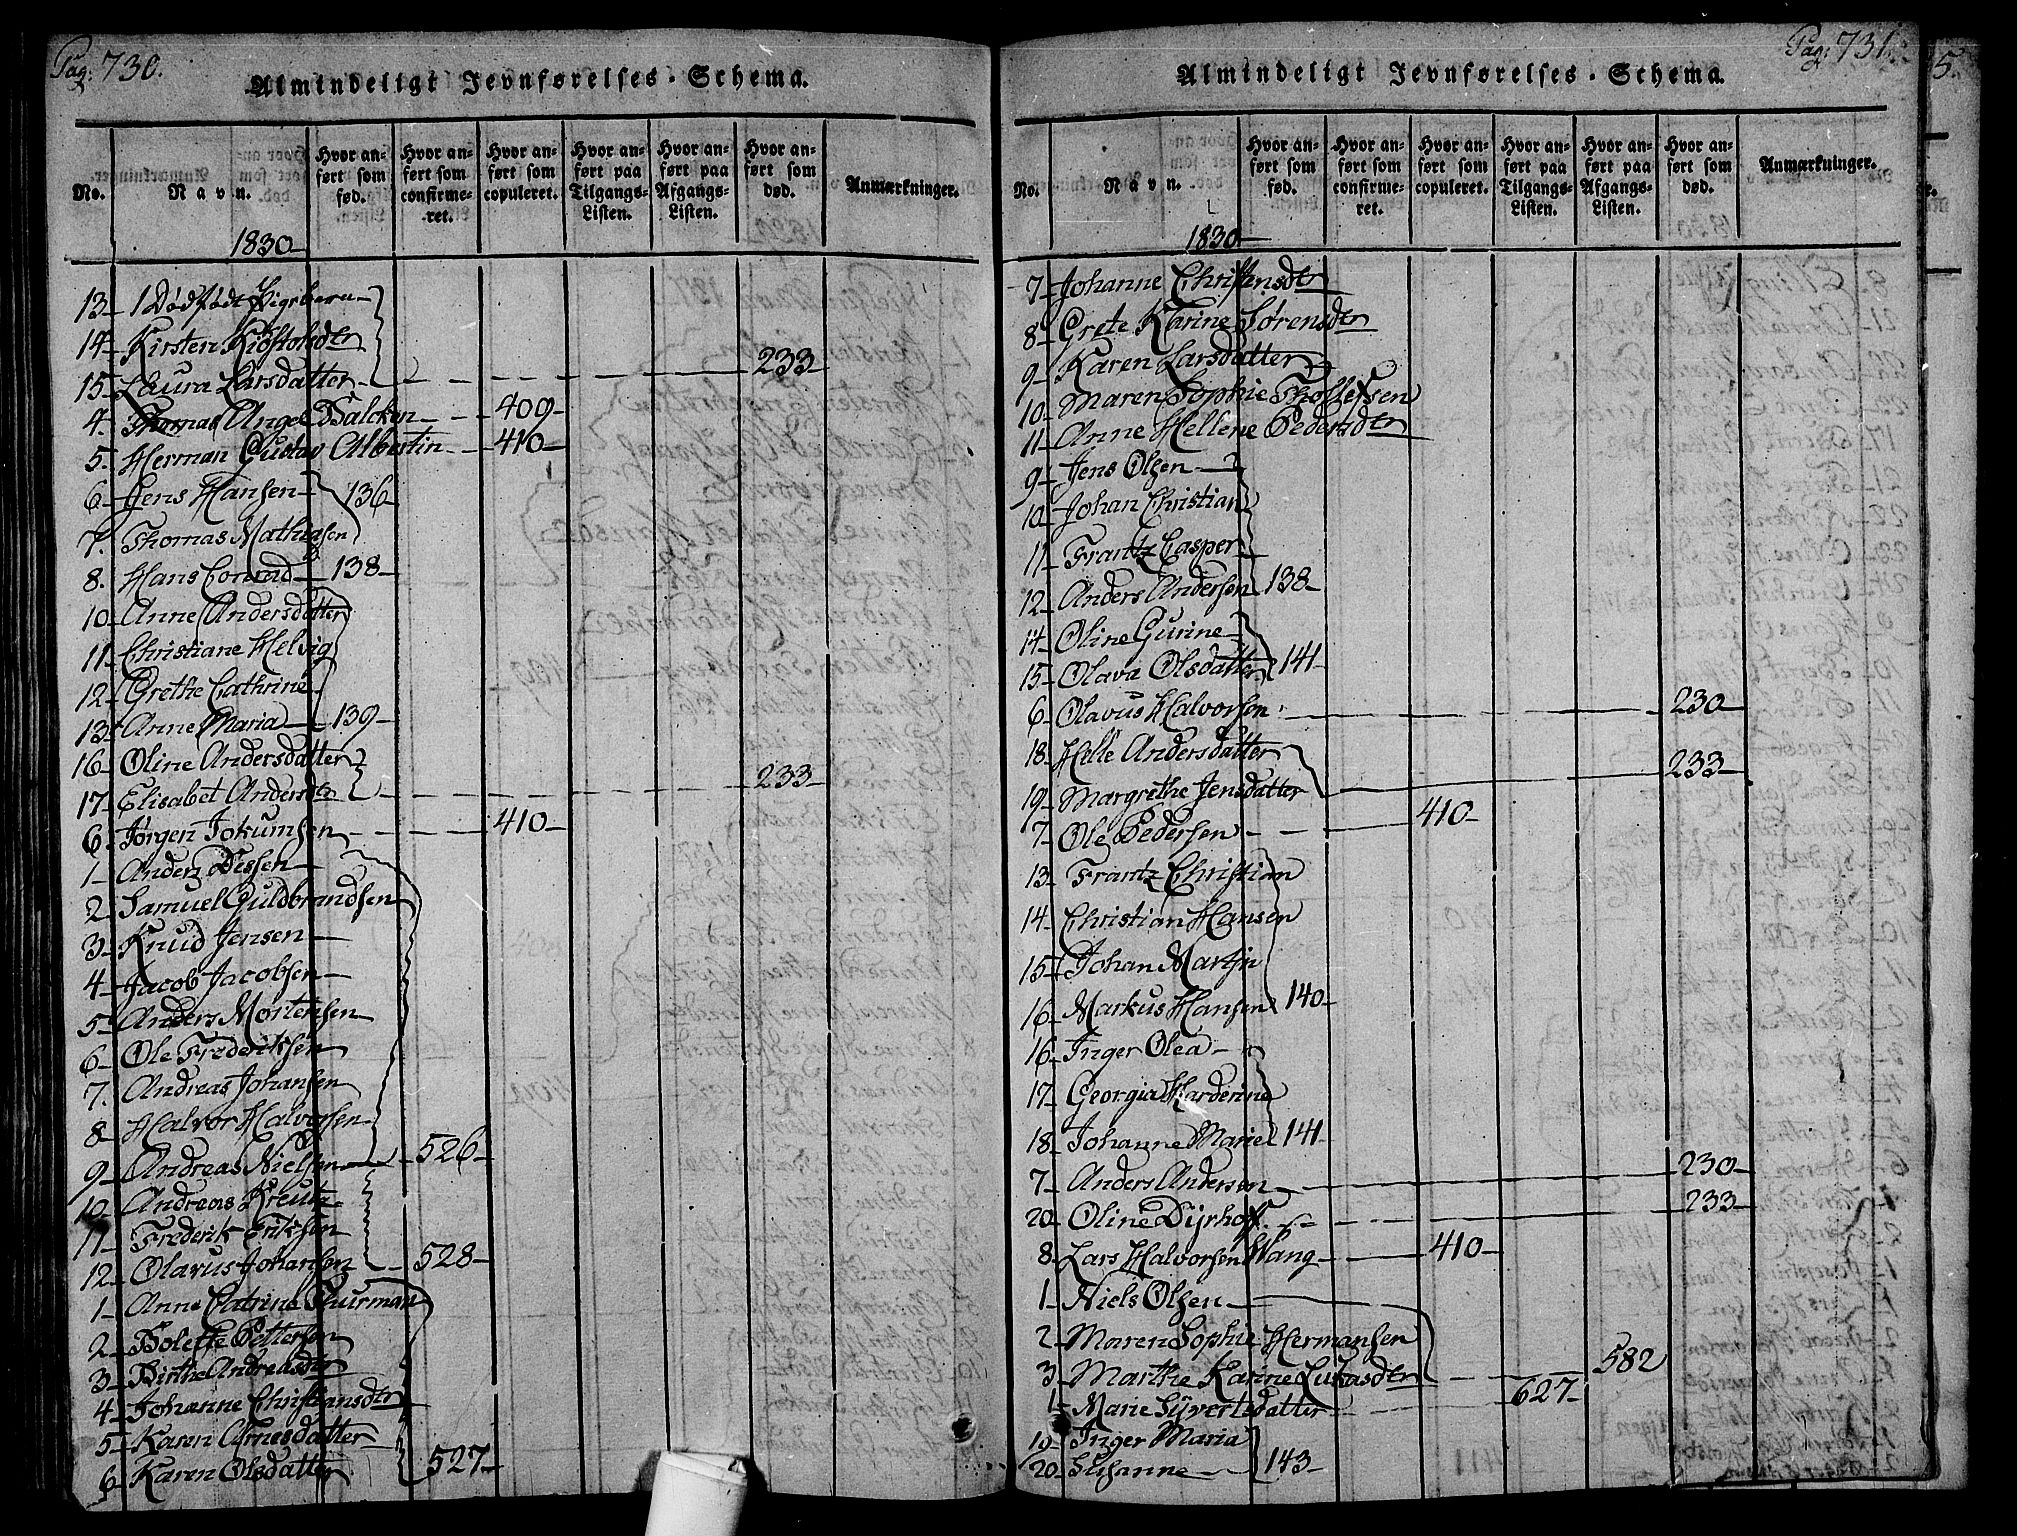 Pag: 730.
Almindeligt Jevnførelses-Schema.
No.
Navn.
Hvor anført som fød.
Hvor anført som confirmeret.
Hvor anført som copuleret.
Hvor anført paa Tilgangs-Listen.
Hvor anført paa Afgangs-Listen.
Hvor anført som død.
Anmærkninger.
1830
13 1 Dødfødt Pigebarn
14 Kirsten
15 Laura Larsdatter 233
4 Thomas Angel Balcken 409
5. Herman Gustav Albertin 410
6 Jens Hansen 136
7. Thomas Mathiesen
8. Hans Conrad 138
10 Anne Andersdatter
11 Christiane Helvig
12 Grethe Cathrine
13 Anne Maria 139
16 Oline Andersdatter
17 Elisabet Andersdtr 233
6. Jørgen Jokumsen 410
1 Anders Dessen
2 Samuel Guldbrandsen
3 Knud Jensen
4 Jacob Jacobsen
5 Anders Mortensen
6 Ole Frederiksen
7. Andreas Johansen
8 Halvor Halvorsen
9 Andreas Nielsen 526
10 Andreas Kreutz
11 Frederik Eriksen
12 Olavus Johansen 528
1 Anne Catrine Thurman
2 Bolette Pettersen
3 Birthe Andreasdtr
4 Johanne Christiansdtr
5 Karen Arnesdatter
6 Karen Olsdatter 527
Pag: 731.
Almindeligt Jevnførelses-Schema.
No.
Navn.
Hvor anført som fød.
Hvor anført som confirmeret.
Hvor anført som copuleret.
Hvor anført paa Tilgangs-Listen.
Hvor anført paa Afgangs-Listen.
Hvor anført som død.
Anmærkninger.
1830
7 Johanne Christensdtr
8 Grete Karine Sørensdtr
9 Karen Larsdatter
10 Maren Sophie Thollefsen
11 Anne Hellene Pedersdtr
9 Jens Olsen
10 Johan Christian
11 Frantz Casper
12 Anders Andersen 138
14 Oline Gurine
15 Olava Olsdatter 141
6 Olavus Halvorsen 230
18 Helle Andersdatter
19 Margrethe Jensdatter 233
7 Ole Pedersen 410
13 Frantz Christian
14 Christian Hansen
15 Johan Martin
16 Markus Hansen 140
16 Inger Olea
17 Georgia Harderine
18 Johanne Marie 141
7 Anders Andersen 230
20 Oline Dyrhof 233
8 Lars Halvorsen Wang 410
1 Niels Olsen
2 Maren Sophie Hermansen
3 Marthe Karine Lukasdtr 582
1 Marie Syvertsdatter 627
19 Inger Maria
20 Susanne 143
5.